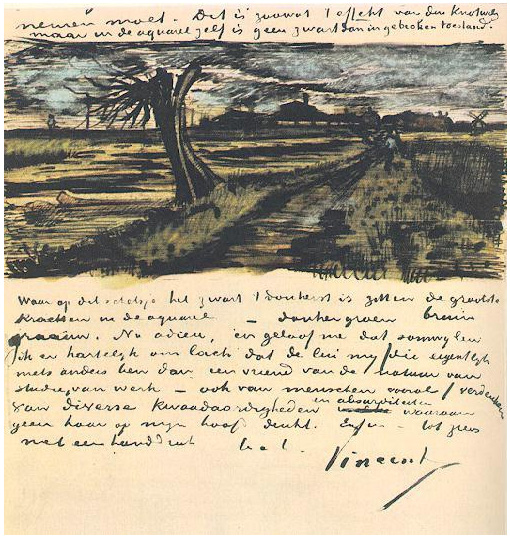 nemen moet. Dit is zoowat 't effekt van den Knotwilg
maar in de aquarel zelf is geen zwart dan in gebroken toestand.
Waar op dit schetsje het zwart 't donkerst is zitten de grootste
krachten in de aquarel – donkergroen bruin
graauw. Nu adieu, en geloof me dat somwylen
ik er hartelyk om lach dat de lui my (die eigentlyk
niets anders ben dan een vriend van de natuur van
studie, van werk – ook van menschen vooral) verdenken
van diverse kwaadaardigheden en absurditeiten waaraan
geen haar op myn hoofd denkt. Enfin – tot ziens
met een handdruk
Vincent